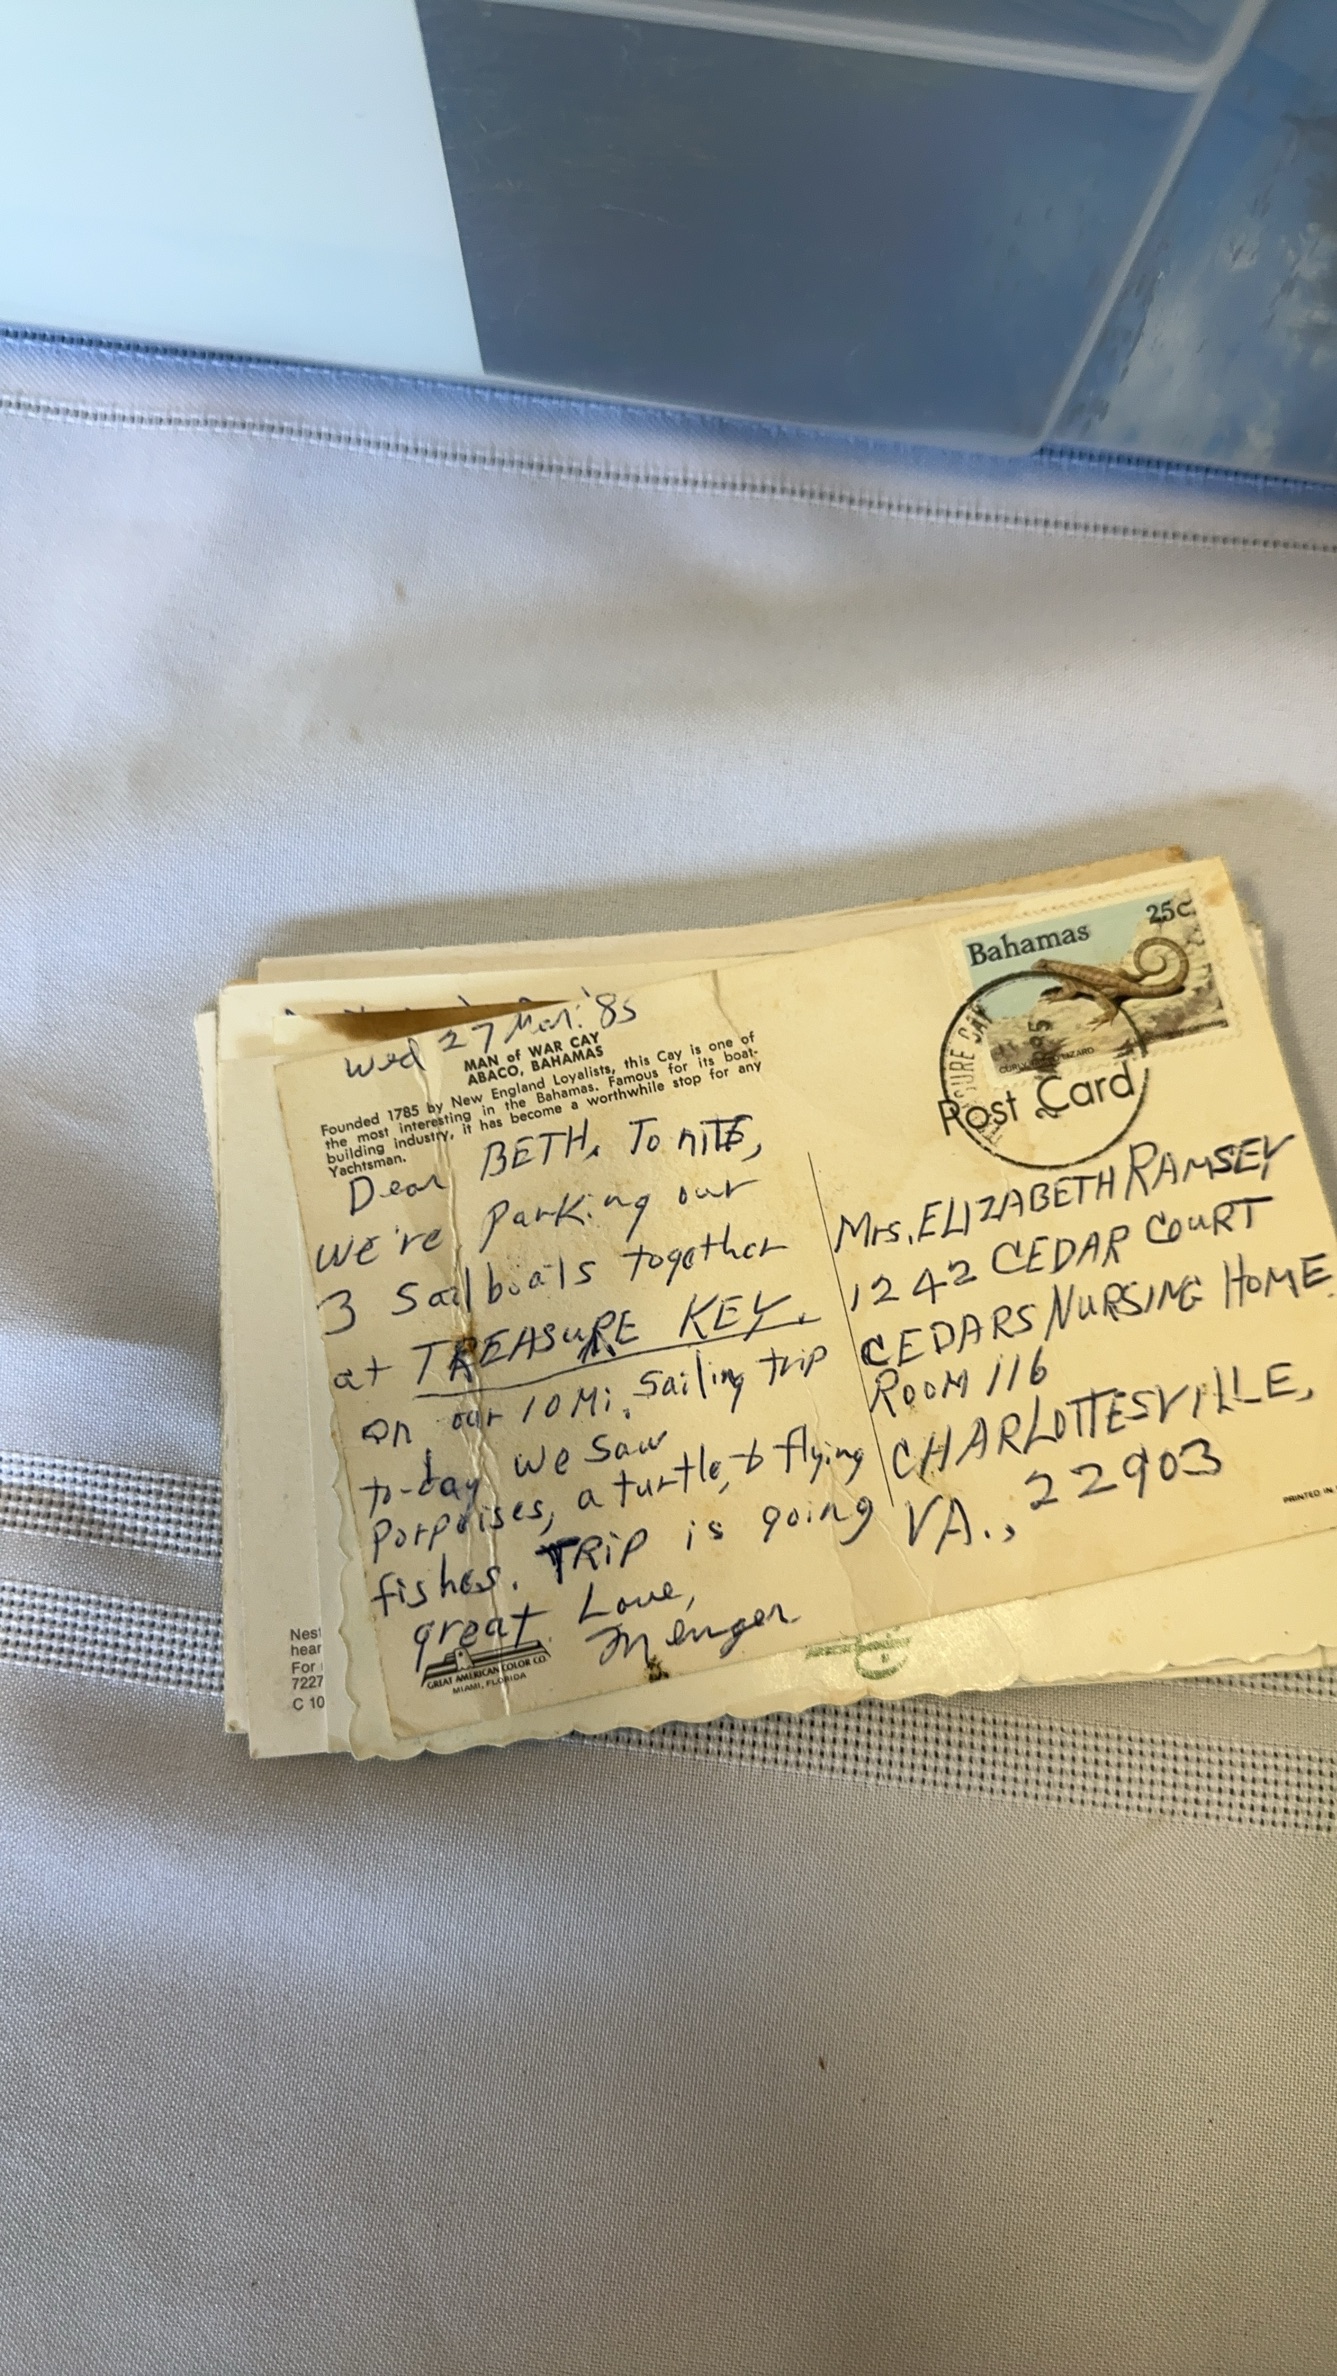 Wed 27 Mar. '85
MAN of WAR CAY
ABACO, BAHAMAS
Founded 1785 by New England Loyalists, this Cay is one of
the most interesting in the Bahamas. Famous for its boat-
building industry, it has become a worthwhile stop for any
Yachtsman.
Dear BETH, To nite,
we're parking our
3 Sailboats together
at TREASURE KEY.
on our 10 Mi. Sailing trip
to-day we saw
porpoises, a turtle, & flying
fishes. TRIP is going
great. Love,
Menger
GREAT AMERICAN COLOR CO.
MIAMI, FLORIDA
Bahamas 25c
Post Card
Mrs. ELIZABETH RAMSEY
1242 CEDAR COURT
CEDARS NURSING HOME
ROOM 116
CHARLOTTESVILLE,
VA., 22903
PRINTED IN
Nest
hear
For
7227
C 10